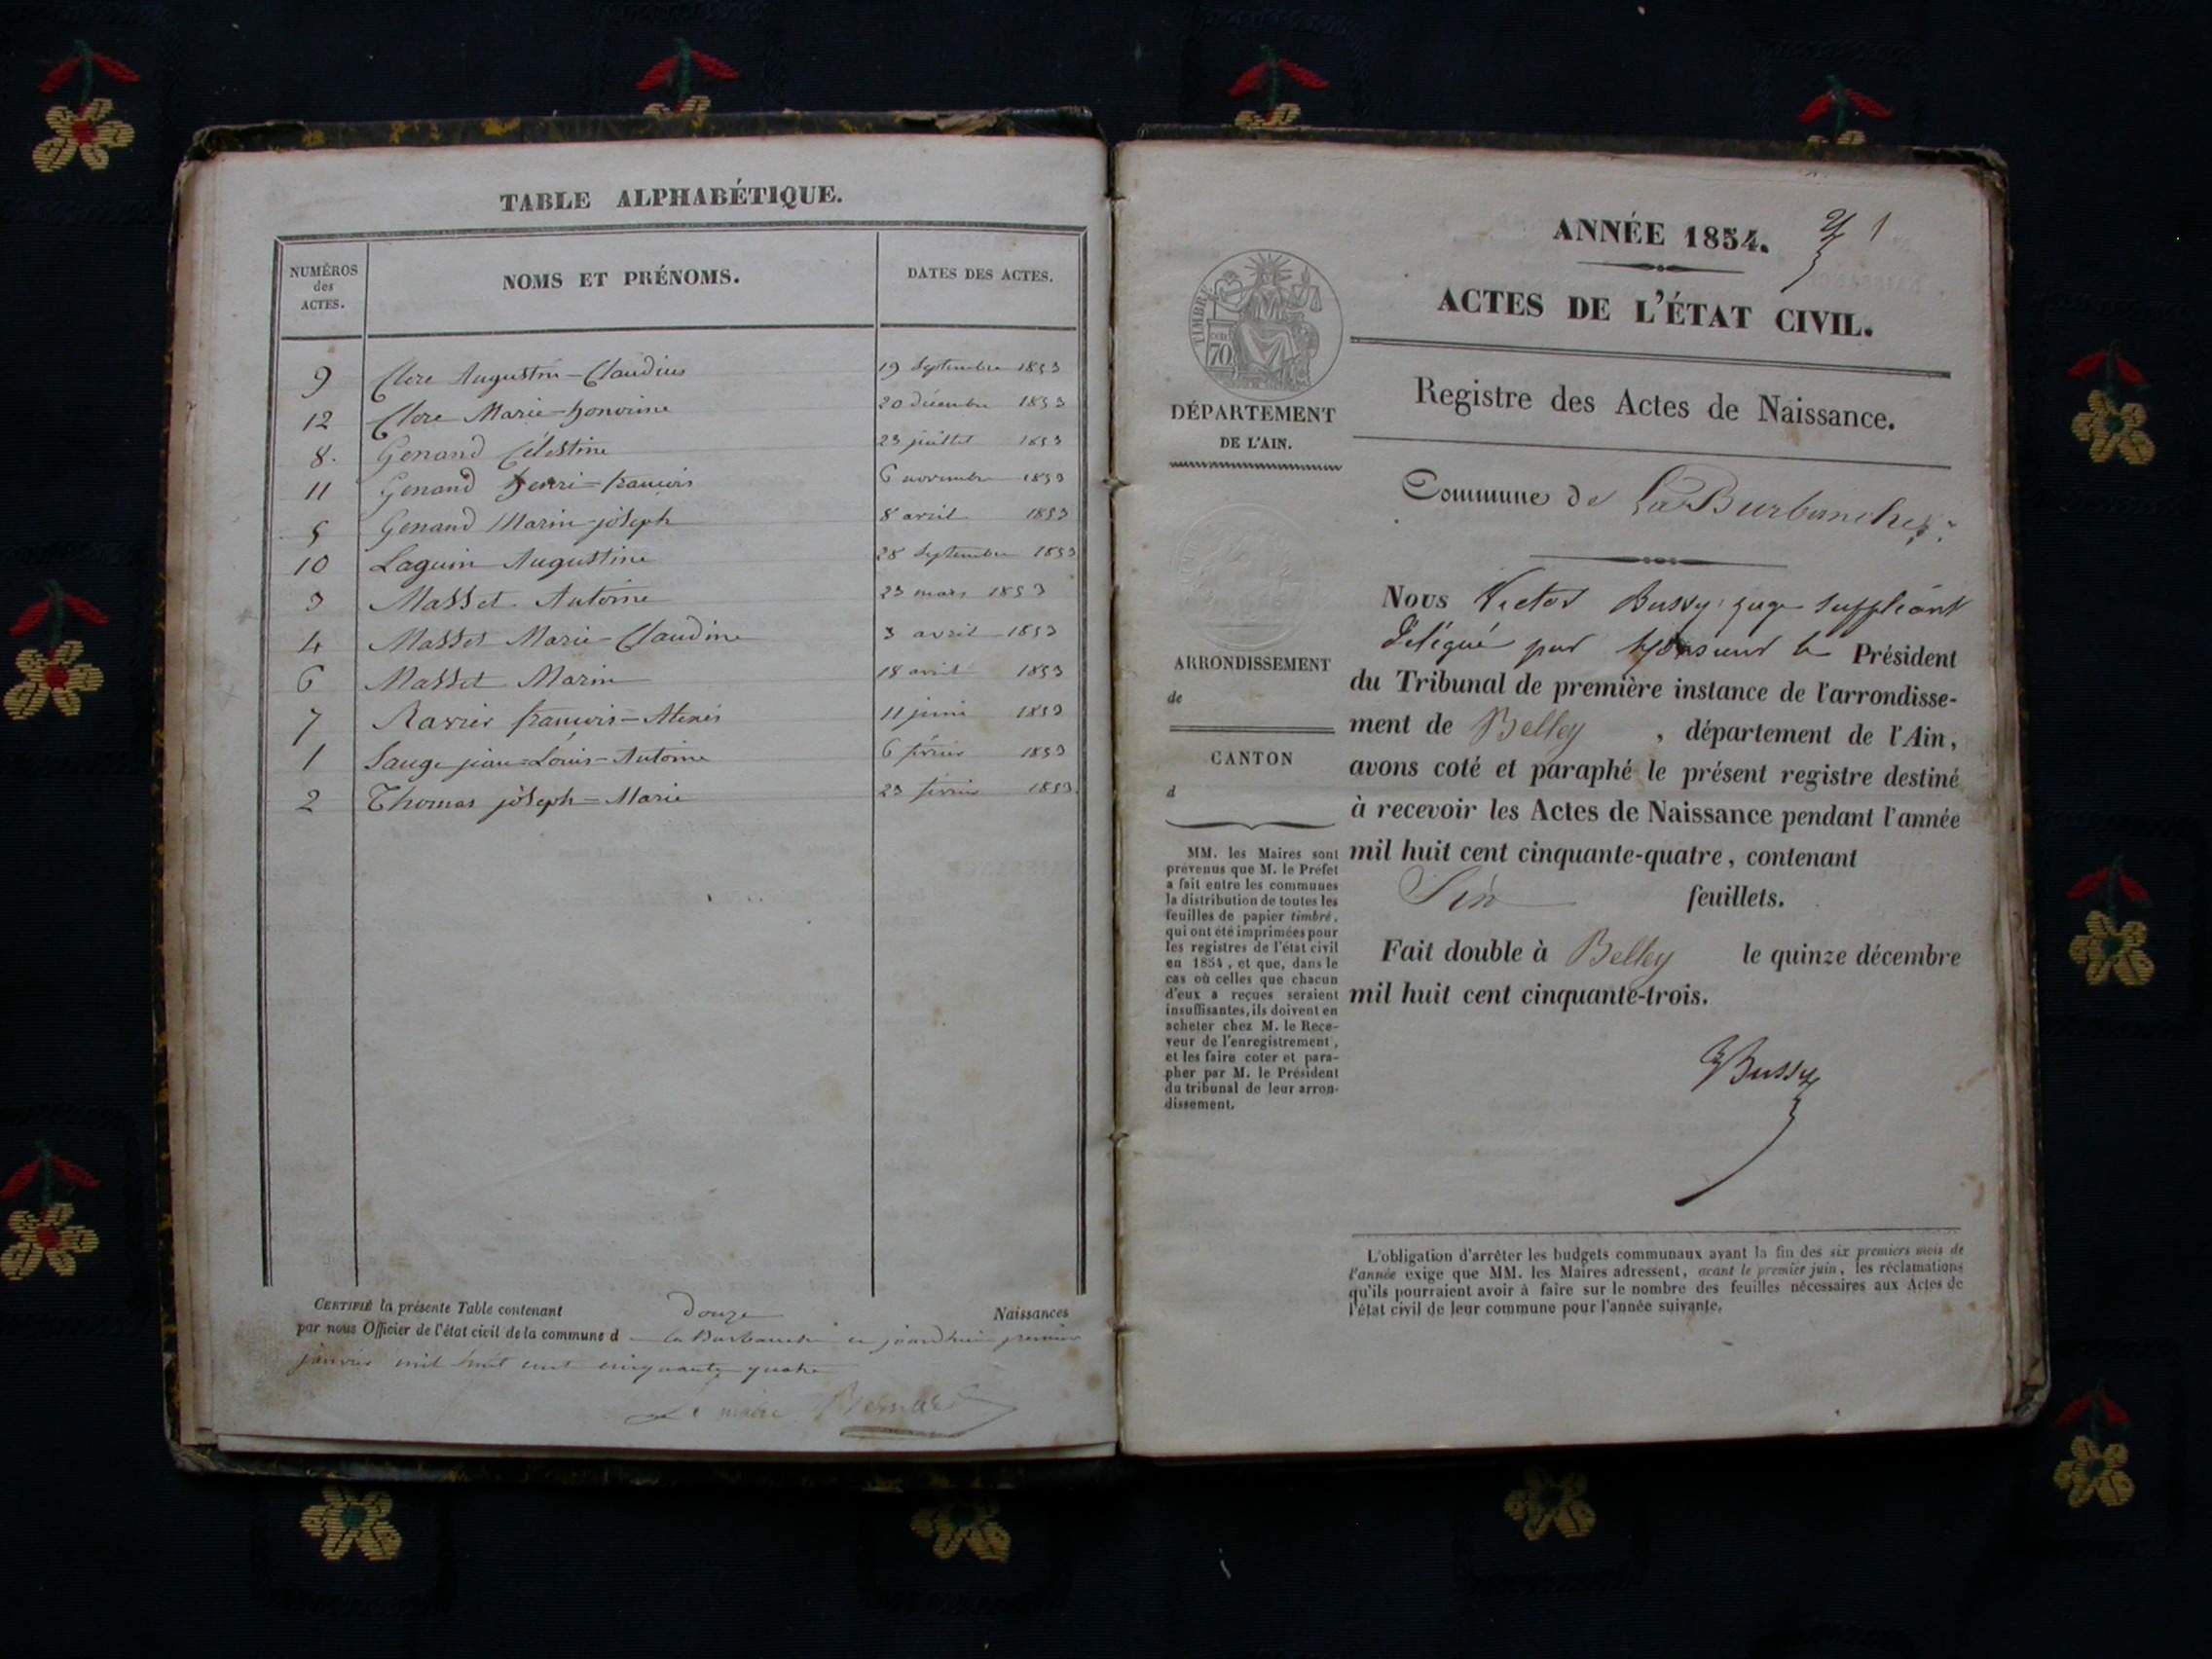 TABLE ALPHABÉTIQUE.
NUMÉROS des ACTES. NOMS ET PRÉNOMS. DATES DES ACTES.
9 Clerc Augustin-Claudius 19 Septembre 1853
12 Clerc Marie-honorine 20 décembre 1853
8. Genand Célestine 23 juillet 1853
11 Genand henri=francois 6 novembre 1853
5 Genand Marin-joseph 8 avril 1853
10 Laguin Augustine 28 Septembre 1853
3 Masset Antoine 23 mars 1853
4 Masset Marie-Claudine 3 avril 1853
6 Masset Marin 18 avril 1853
7 Ravier francois=Alexis 11 juin 1853
1 Sauge jean=Louis-Antoine 6 février 1853
2 Thomas joseph=Marie 23 février 1853.
CERTIFIÉ la présente Table contenant douze Naissances
par nous Officier de l'état civil de la commune d la Burbanche ce jourd'hui premier
janvier mil huit cent cinquante quatre
Le maire Bernard
ANNÉE 1854. 1
ACTES DE L'ÉTAT CIVIL.
Registre des Actes de Naissance.
Commune de La Burbanche
TIMBRE
70
DÉPARTEMENT
DE L'AIN.
ARRONDISSEMENT
de
CANTON
d
MM. les Maires sont
prévenus que M. le Préfet
a fait entre les communes
la distribution de toutes les
feuilles de papier timbré,
qui ont été imprimées pour
les registres de l'état civil
en 1854, et que, dans le
cas où celles que chacun
d'eux a reçues seraient
insuffisantes, ils doivent en
acheter chez M. le Rece-
veur de l'enregistrement,
et les faire coter et para-
pher par M. le Président
du tribunal de leur arron-
dissement.
Nous Victor Bussy juge suppléant
délégué par Monsieur le Président
du Tribunal de première instance de l'arrondisse-
ment de Belley , département de l'Ain,
avons coté et paraphé le présent registre destiné
à recevoir les Actes de Naissance pendant l'année
mil huit cent cinquante-quatre, contenant
Six feuillets.
Fait double à Belley le quinze décembre
mil huit cent cinquante-trois.
Bussy
L'obligation d'arrêter les budgets communaux avant la fin des six premiers mois de
l'année exige que MM. les Maires adressent, avant le premier juin, les réclamations
qu'ils pourraient avoir à faire sur le nombre des feuilles nécessaires aux Actes de
l'état civil de leur commune pour l'année suivante.